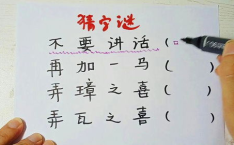 猜字谜
不要讲话(
再加一马( )
弄璋之喜( )
弄瓦之喜( )